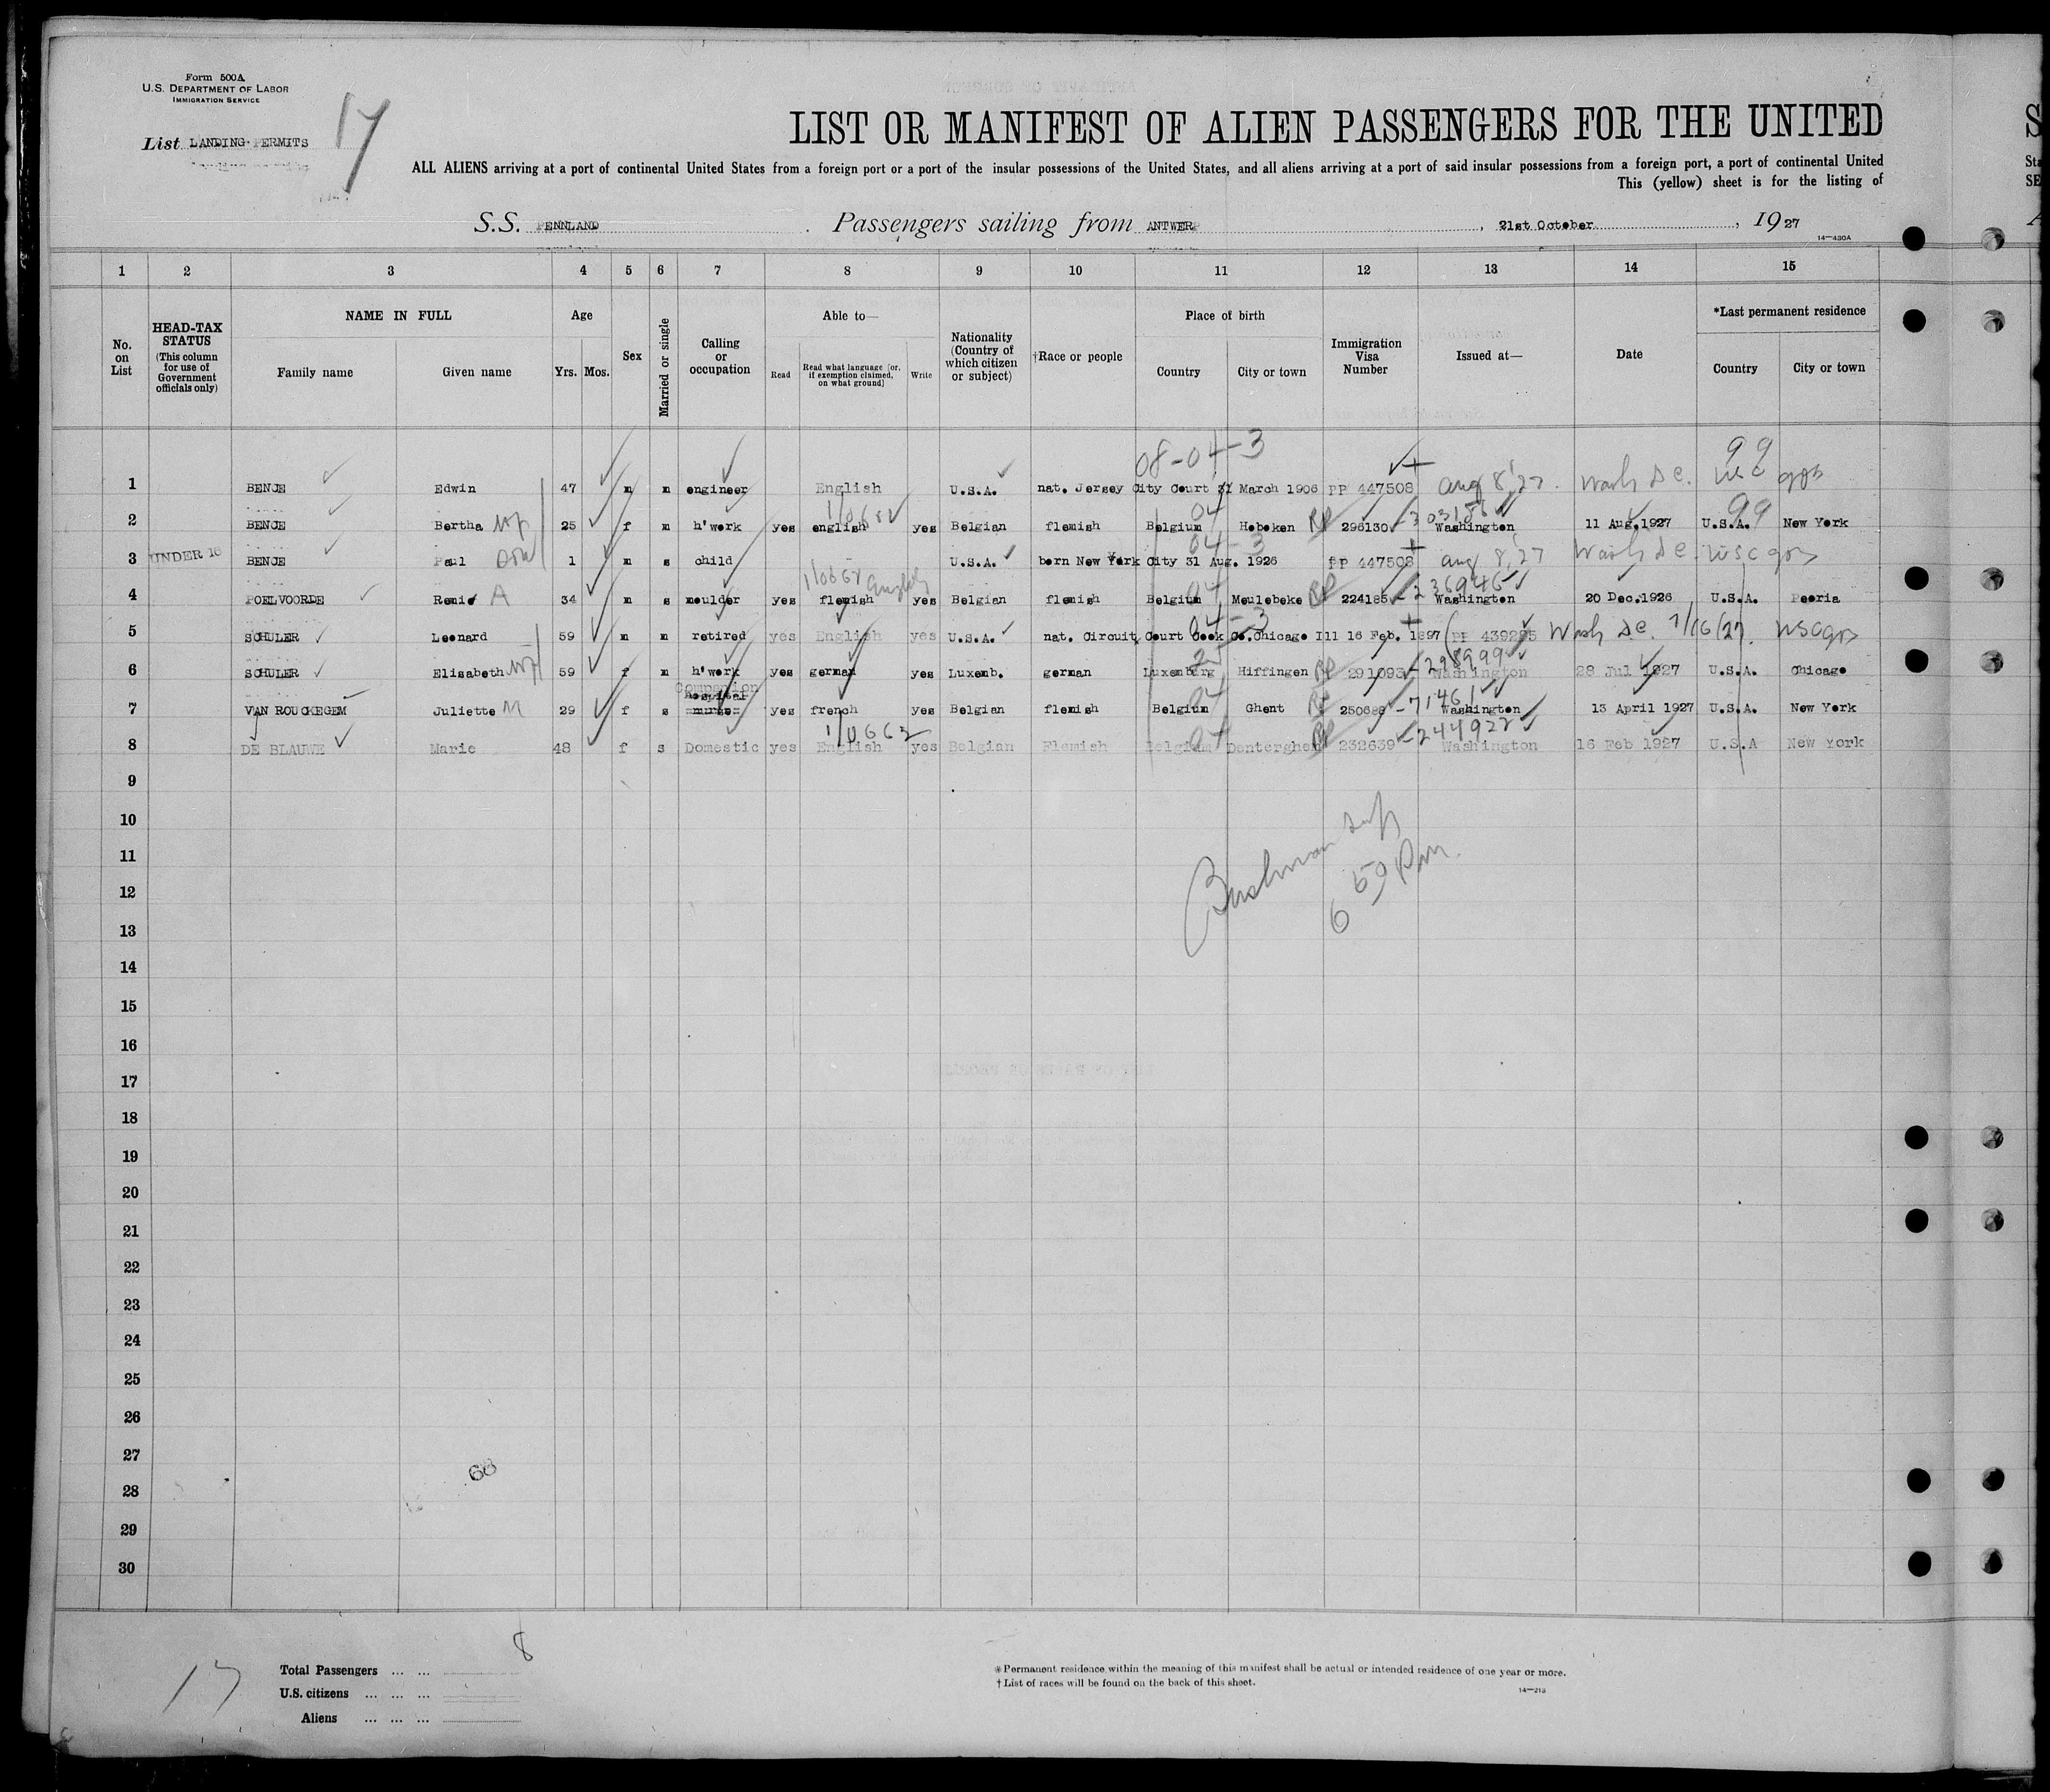 Form 500A
U.S. DEPARTMENT OF LABOR
IMMIGRATION SERVICE
17
List LANDING PERMITS
LIST OR MANIFEST OF ALIEN PASSENGERS FOR THE UNITED
ALL ALIENS arriving at a port of continental United States from a foreign port or a port of the insular possessions of the United States, and all aliens arriving at a port of said insular possessions from a foreign port, a port of continental United
This (yellow) sheet is for the listing of
S.S. PENNLAND Passengers sailing from ANTWERP, 21st October, 1927
14—430A
1 2 3 4 5 6 7 8 9 10 11 12 13 14 15
No. on List
HEAD-TAX STATUS (This column for use of Government officials only)
NAME IN FULL
Family name Given name
Age
Yrs. Mos.
Sex
Married or single
Calling or occupation
Able to—
Read Read what language [or, if exemption claimed, on what ground] Write
Nationality (Country of which citizen or subject)
†Race or people
Place of birth
Country City or town
Immigration Visa Number
Issued at—
Date
*Last permanent residence
Country City or town
08-04-3 99
1 BENJE Edwin 47 m m engineer English U.S.A. nat. Jersey City Court 31 March 1906 PP 447508 Aug 8, 27. Wash D.C.
1/0652 04 303156 99
2 BENJE Bertha 25 f m h'work yes english yes Belgian flemish Belgium Hoboken RP 296130 Washington 11 Aug.1927 U.S.A. New York
04-3
3 UNDER 16 BENJE Paul 1 m s child U.S.A. born New York City 31 Aug. 1926 PP 447508 Aug 8, 27 Wash D.C. USC
04 236946
4 POELVOORDE Remie A 34 m s moulder yes flemish yes Belgian flemish Belgium Meulebeke RP 224185 Washington 20 Dec.1926 U.S.A. Peoria
04-3
5 SCHULER Leonard 59 m m retired yes English yes U.S.A. nat. Circuit Court Cook Co.Chicago Ill 16 Feb. 1897 PP 439295 Wash D.C. 7/16/27. USC
298999
6 SCHULER Elisabeth 59 f m h'work yes german yes Luxemb. german Luxemburg Hiffingen RP 291093 Washington 28 Jul 1927 U.S.A. Chicago
Companion
hospital 04 71461
7 VAN ROUCKEGEM Juliette M 29 f s nurse yes french yes Belgian flemish Belgium Ghent RP 250686 Washington 13 April 1927 U.S.A. New York
1/0662 04 244922
8 DE BLAUWE Marie 48 f s Domestic yes English yes Belgian Flemish Belgium Denterghem RP 232639 Washington 16 Feb 1927 U.S.A New York
9
10
11
12
13
14
15
16
17
18
19
20
21
22
23
24
25
26
27
28
29
30
Bushman
6 59 Pm.
60
Total Passengers ... ... 8
U.S. citizens ... ... ...
Aliens ... ... ...
17
*Permanent residence within the meaning of this manifest shall be actual or intended residence of one year or more.
†List of races will be found on the back of this sheet.
14—213